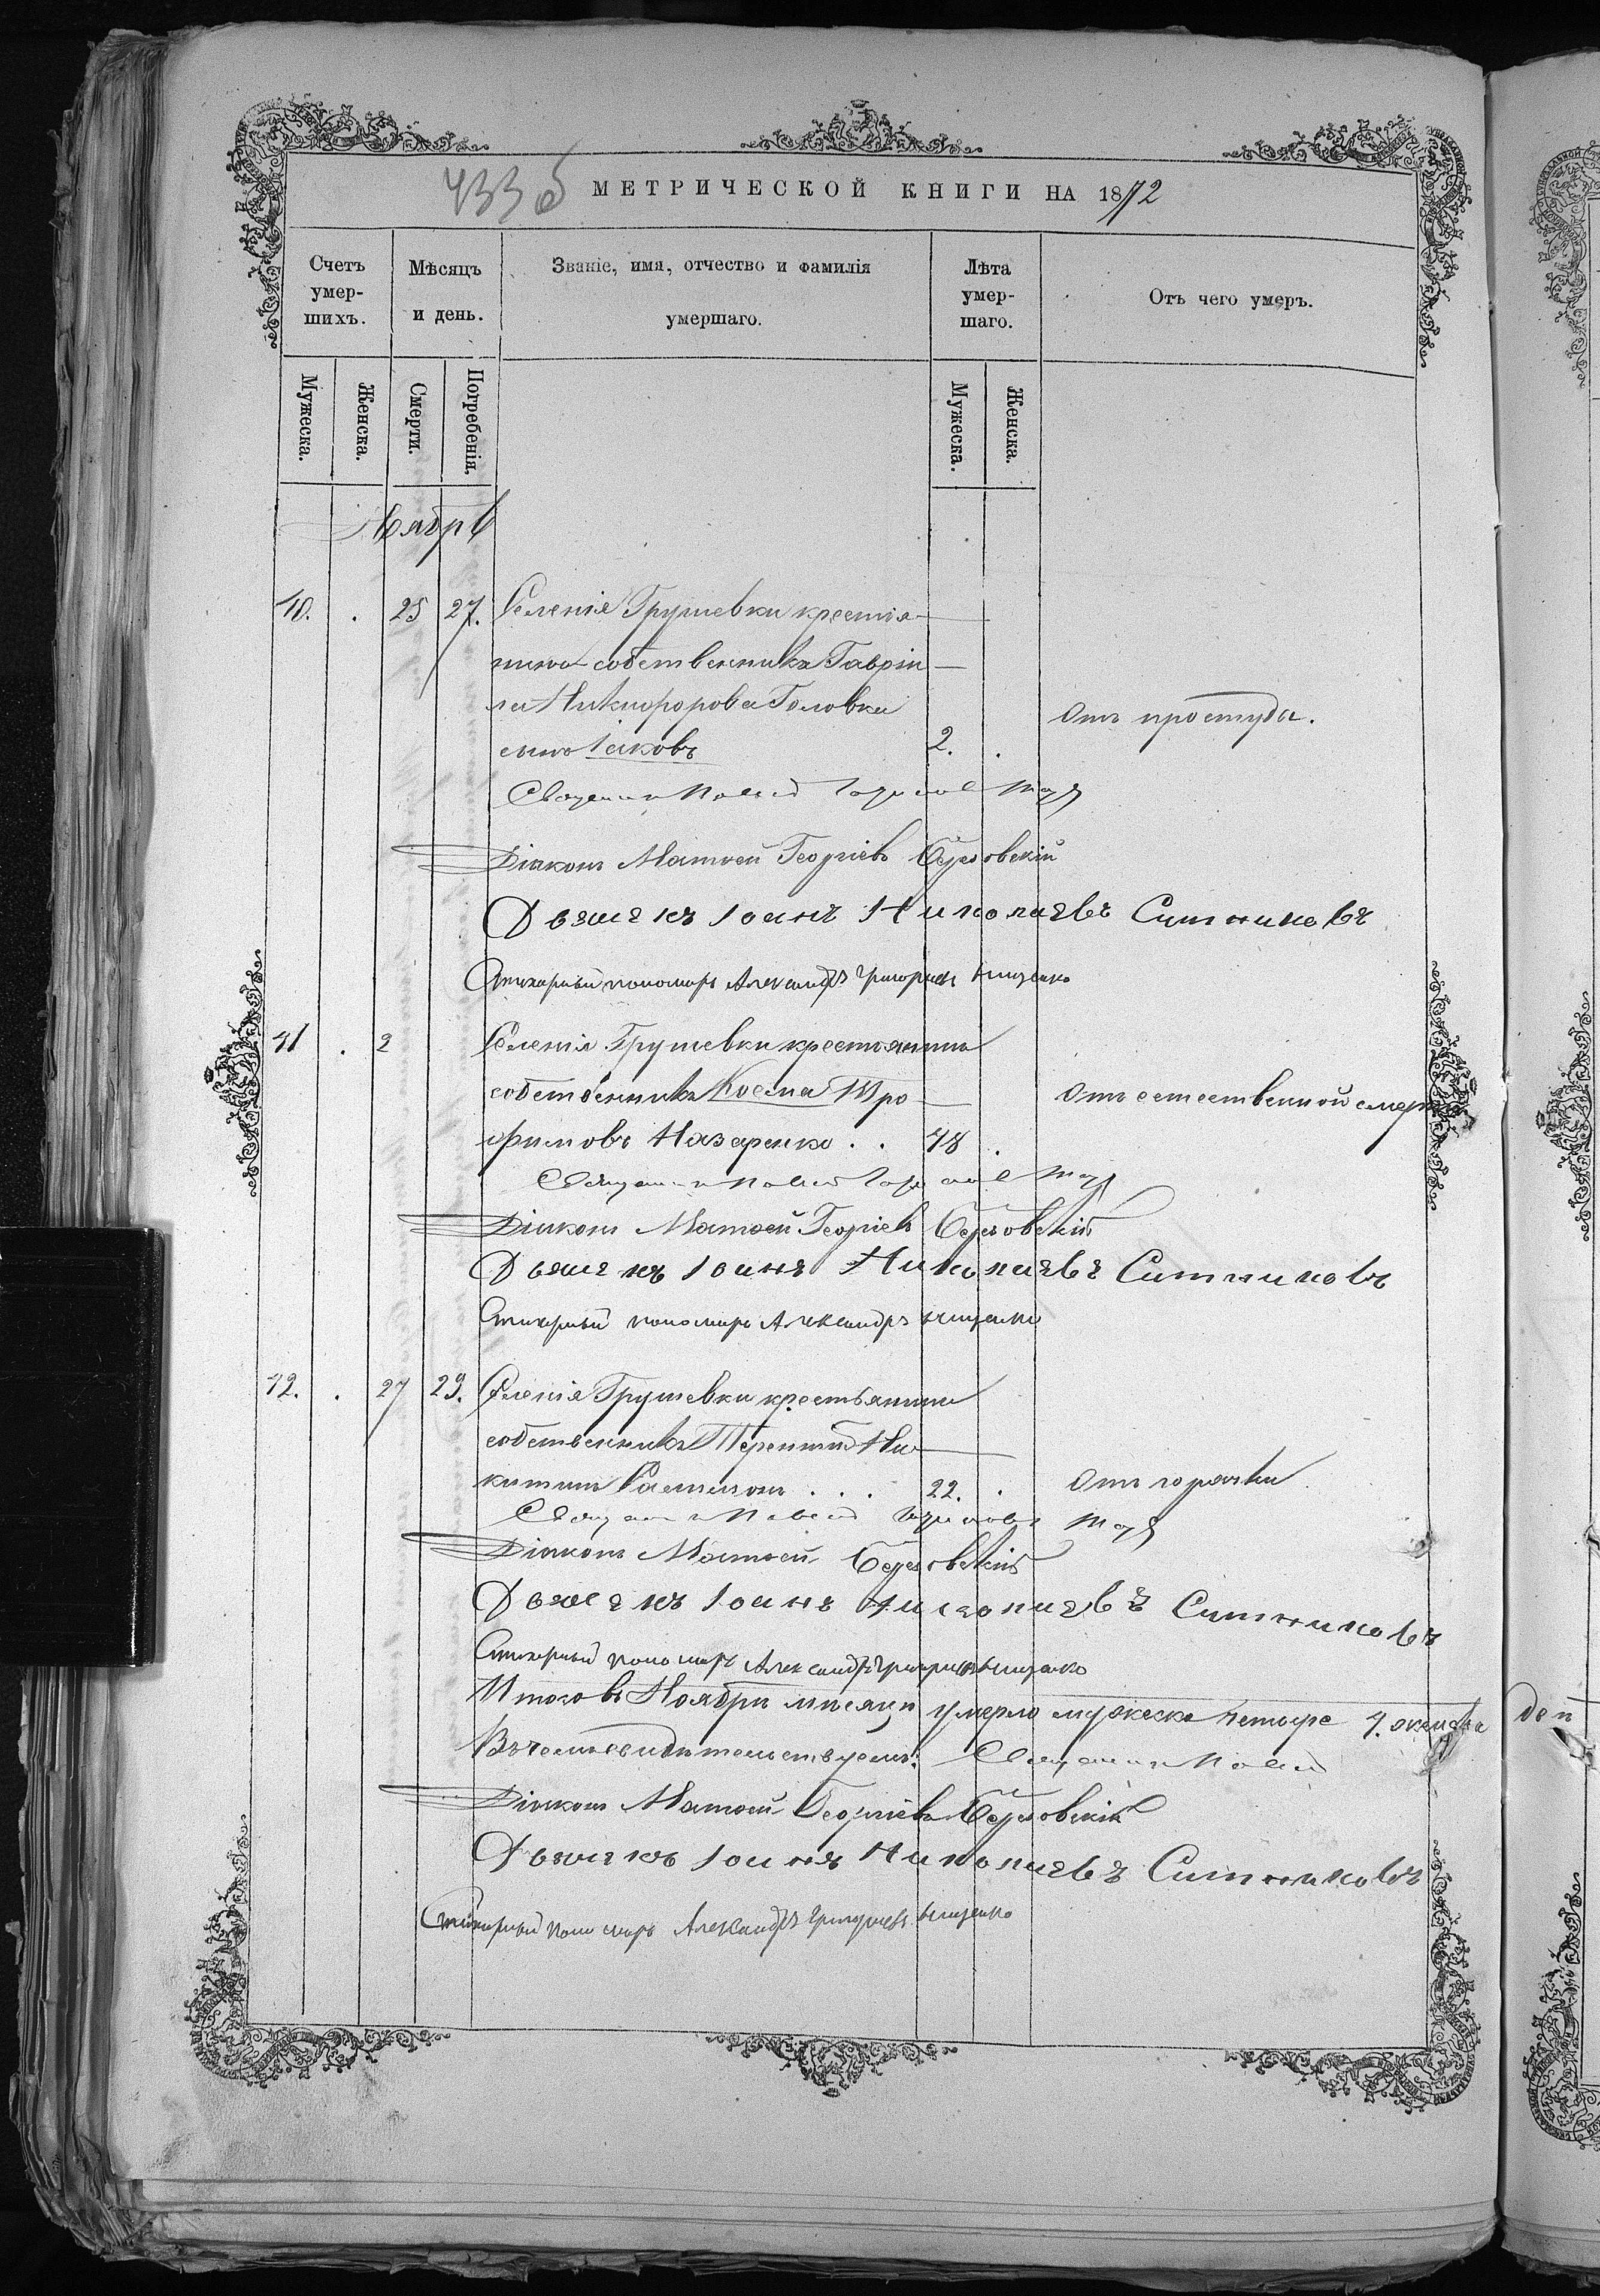 433 об
МЕТРИЧЕСКОЙ КНИГИ НА 1872
Счетъ умер-шихъ.
Мѣсяцъ и день.
Званіе, имя, отчество и фамилія умершаго.
Лѣта умер-шаго.
Отъ чего умеръ.
Мужеска.
Женска.
Смерти.
Погребенія.
Мужеска.
Женска.
Ноябрь
10. . 25 27. Селенія Грушевки крестья-
нина собственника Гаврiи
ла Никифорова Головка
сынъ Іаковъ 2. . Отъ простуды.
Священникъ Павелъ
Діаконъ Матѳей Георгіевъ
Дьячекъ Іоанъ Николаевъ Ситниковъ
Стихарный пономарь Александръ Григорьевъ
11 . 2 Селенія Грушевки крестьянинъ
собственникъ Косма Тро
фимовъ Назаренко . . 78 . Отъ естественной смерт
Священникъ Павелъ
Діаконъ Матѳей Георгіевъ
Дьячекъ Іоанъ Николаевъ Ситниковъ
Стихарный пономарь Александръ
12. . 27 29. Селенія Грушевки крестьянинъ
собственникъ Терентій Ни
китинъ . . . 22. . Отъ горячки
Священникъ Павелъ
Діаконъ Матѳей
Дьячекъ Іоанъ Николаевъ Ситниковъ
Стихарный пономарь Александръ Григорьевъ
Итого въ Ноябрѣ мѣсяцѣ умерло мужеска четыре 4. женска
Въ чемъ свидѣтельствуемъ: Священникъ Павелъ
Діаконъ Матѳей Георгіевъ
Дьячекъ Іоанъ Николаевъ Ситниковъ
Стихарный пономарь Александръ Григорьевъ